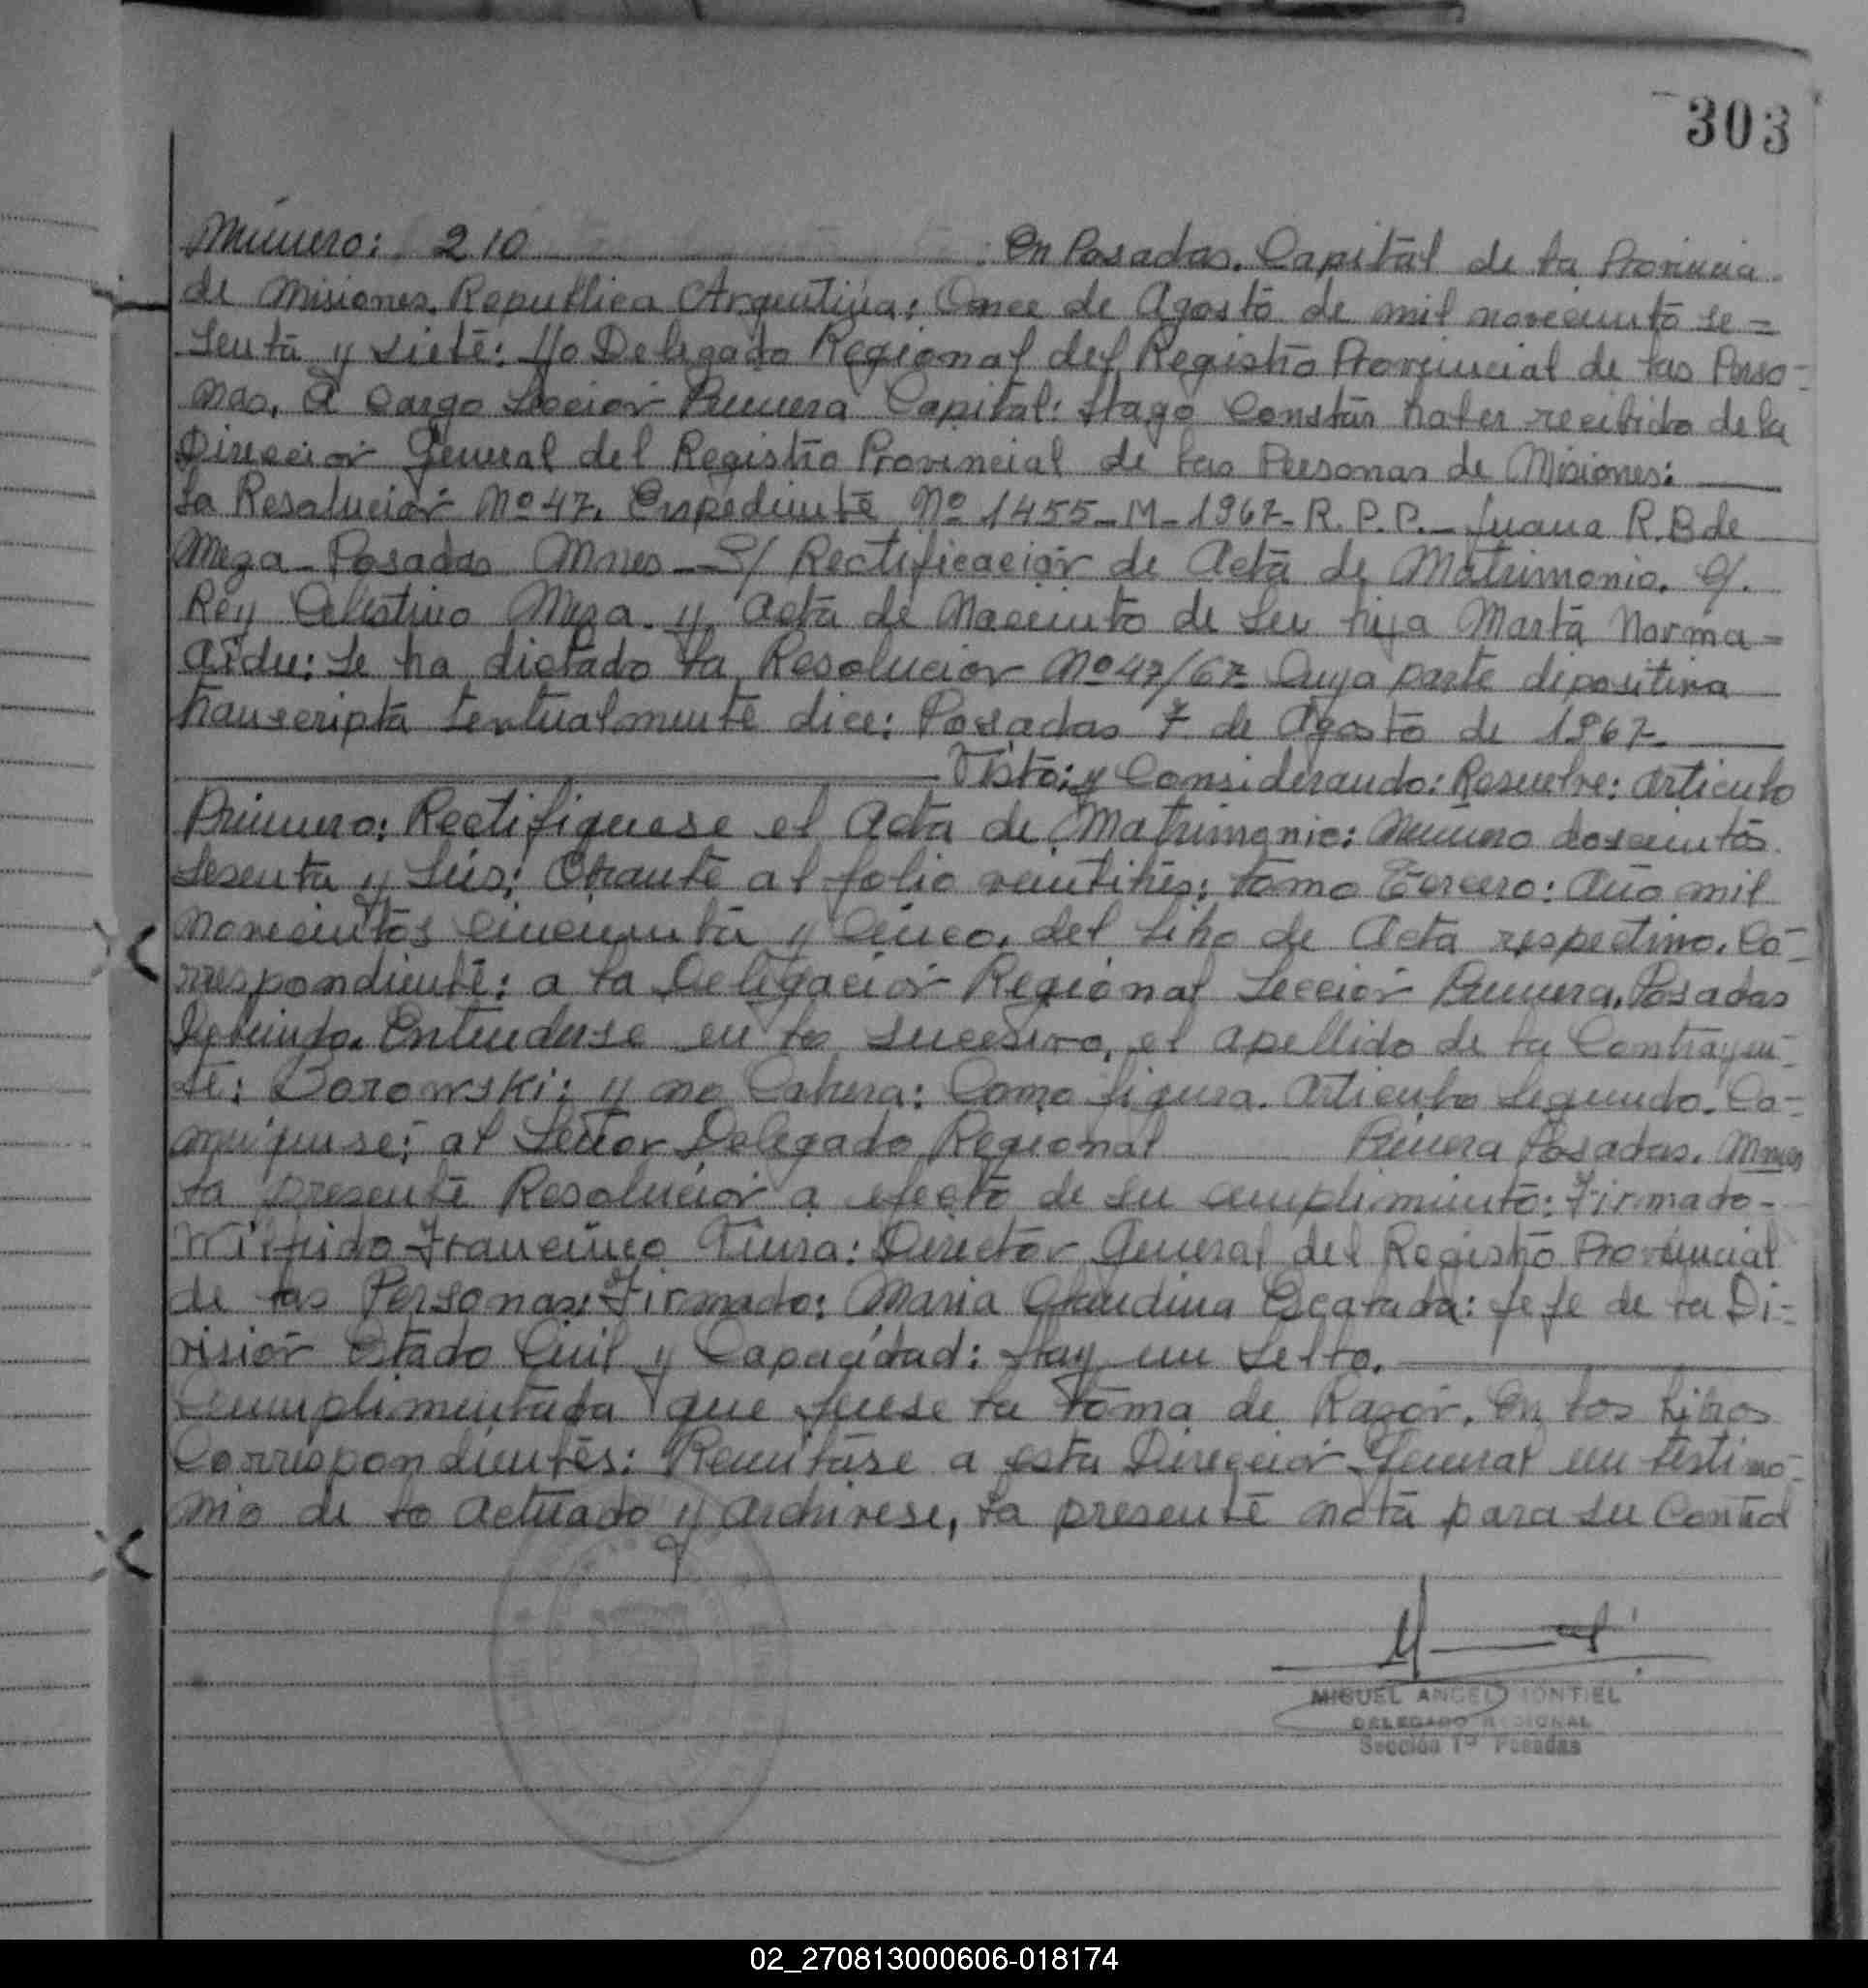 303
Número: 210 En Posadas, Capital de la Provincia
de Misiones, Republica Argentina: Once de Agosto de mil noveciento se=
senta y siete: Yo Delegado Regional del Registro Provincial de las Perso-
nas, A Cargo Seccion Primera Capital: Hago Constar haber recibido de la
Direccion General del Registro Provincial de las Personas de Misiones:
La Resolucion Nº 47. Expediente Nº 1455-M-1967-R.P.P.- Juana R.B de
Meza-Posadas Mnes - S/ Rectificacion de Acta de Matrimonio. C/.
Rey Celestino Meza. y Acta de Nacimto de su hija Marta Norma=
Se ha dictado la Resolucion Nº 47/67 Cuya parte dipositiva
transcripta textualmente dice: Posadas 7 de Agosto de 1967.
Visto: y Considerando: Resuelve: Articulo
Primero: Rectifiquese el Acta de Matrimonio: Número doscientos
sesenta y seis: Obrante al folio veintitres: tomo Tercero: Año mil
novecientos cincuenta y cinco, del libro de Acta respectivo. Co-
rrespondiente: a la Delegacion Regional Seccion Primera, Posadas
Debiendo Entenderse en lo sucesivo, el apellido de la Contrayen-
te: Borowski: y no Como figura. Articulo Segundo. Co-
muniquese: al Señor Delegado Regional Primera Posadas. Mnes
la presente Resolucion a efecto de su cumplimiento: Firmado-
Wilfrido Director General del Registro Provincial
de las Personas: Firmado: Maria Claudina Escalada: Jefe de la Di-
vision Estado Civil y Capacidad: Hay un Sello.
Cumplimentada que fuese la toma de Razon. En los Libros
Correspondientes: Remitase a esta Direccion General un testimo-
nio de lo actuado y archivese, la presente nota para su Control
MIGUEL ANGEL MONTIEL
DELEGADO REGIONAL
Sección 1ª Posadas
02_270813000606-018174